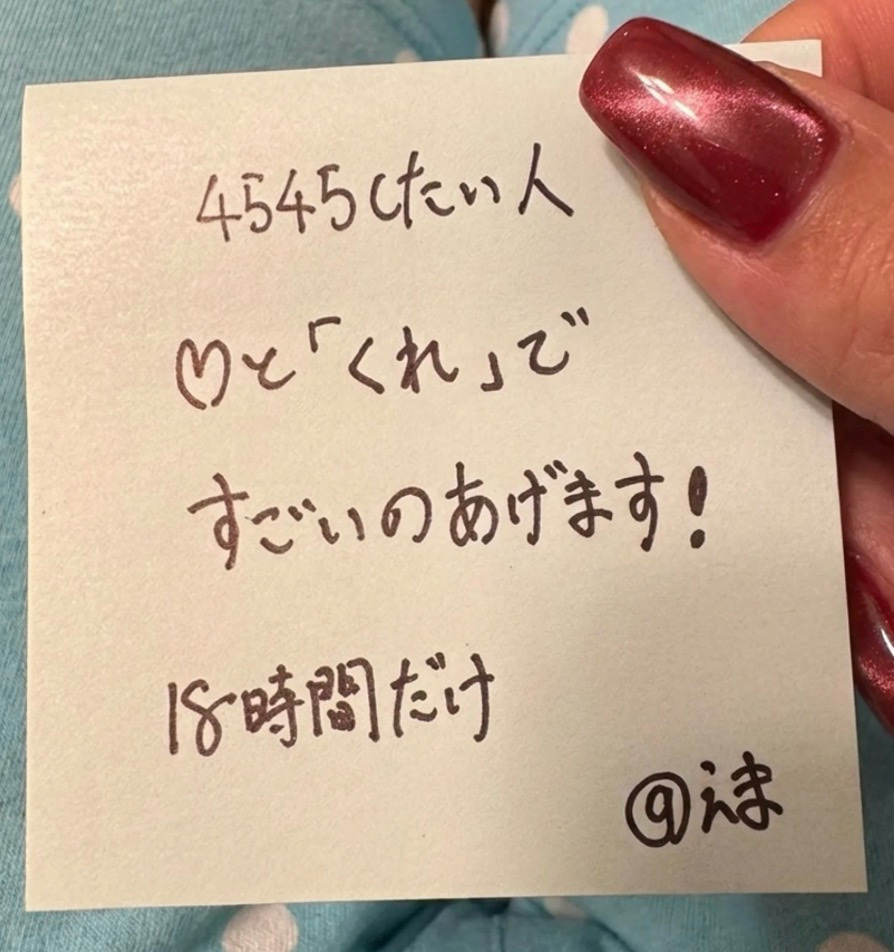 4545したい人
♡と「くれ」で
すごいのあげます!
18時間だけ
@えま